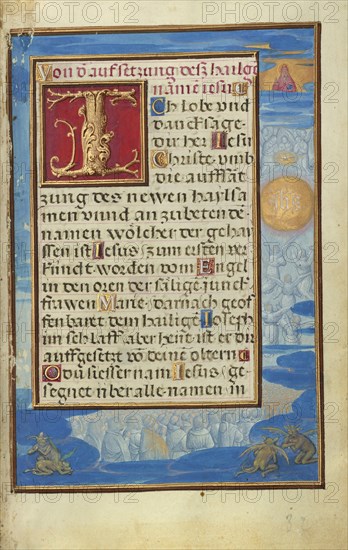 Von d' aufsetzung desz hailge
namē iesu
Ich lobe vnd
danck sage
dir her Iesu
Christe vmb
die auffsat
zung des newen haylsa
men vnnd an zu beten de
namen wölcher der gehay
ssen ist Iesus, zum ersten ver
kundt worden vom Engel
in den oren der sälige junck
frawen Marie, darnach geof
fenbaret dem hailigē Ioseph
im schlaff aber heut ist er dir
auffgesetzt vō deinē oltern
O du suesser nam Iesus, ge
segnet vber alle namen, in